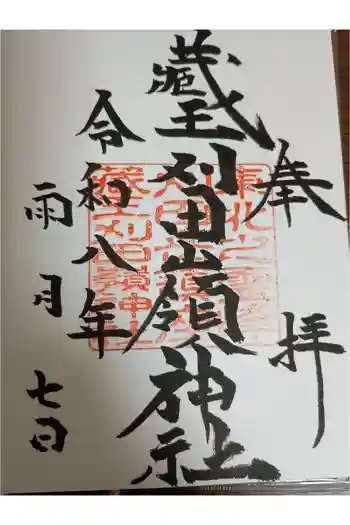 奉拝
蔵王刈田嶺神社
令和八年
雨月七日